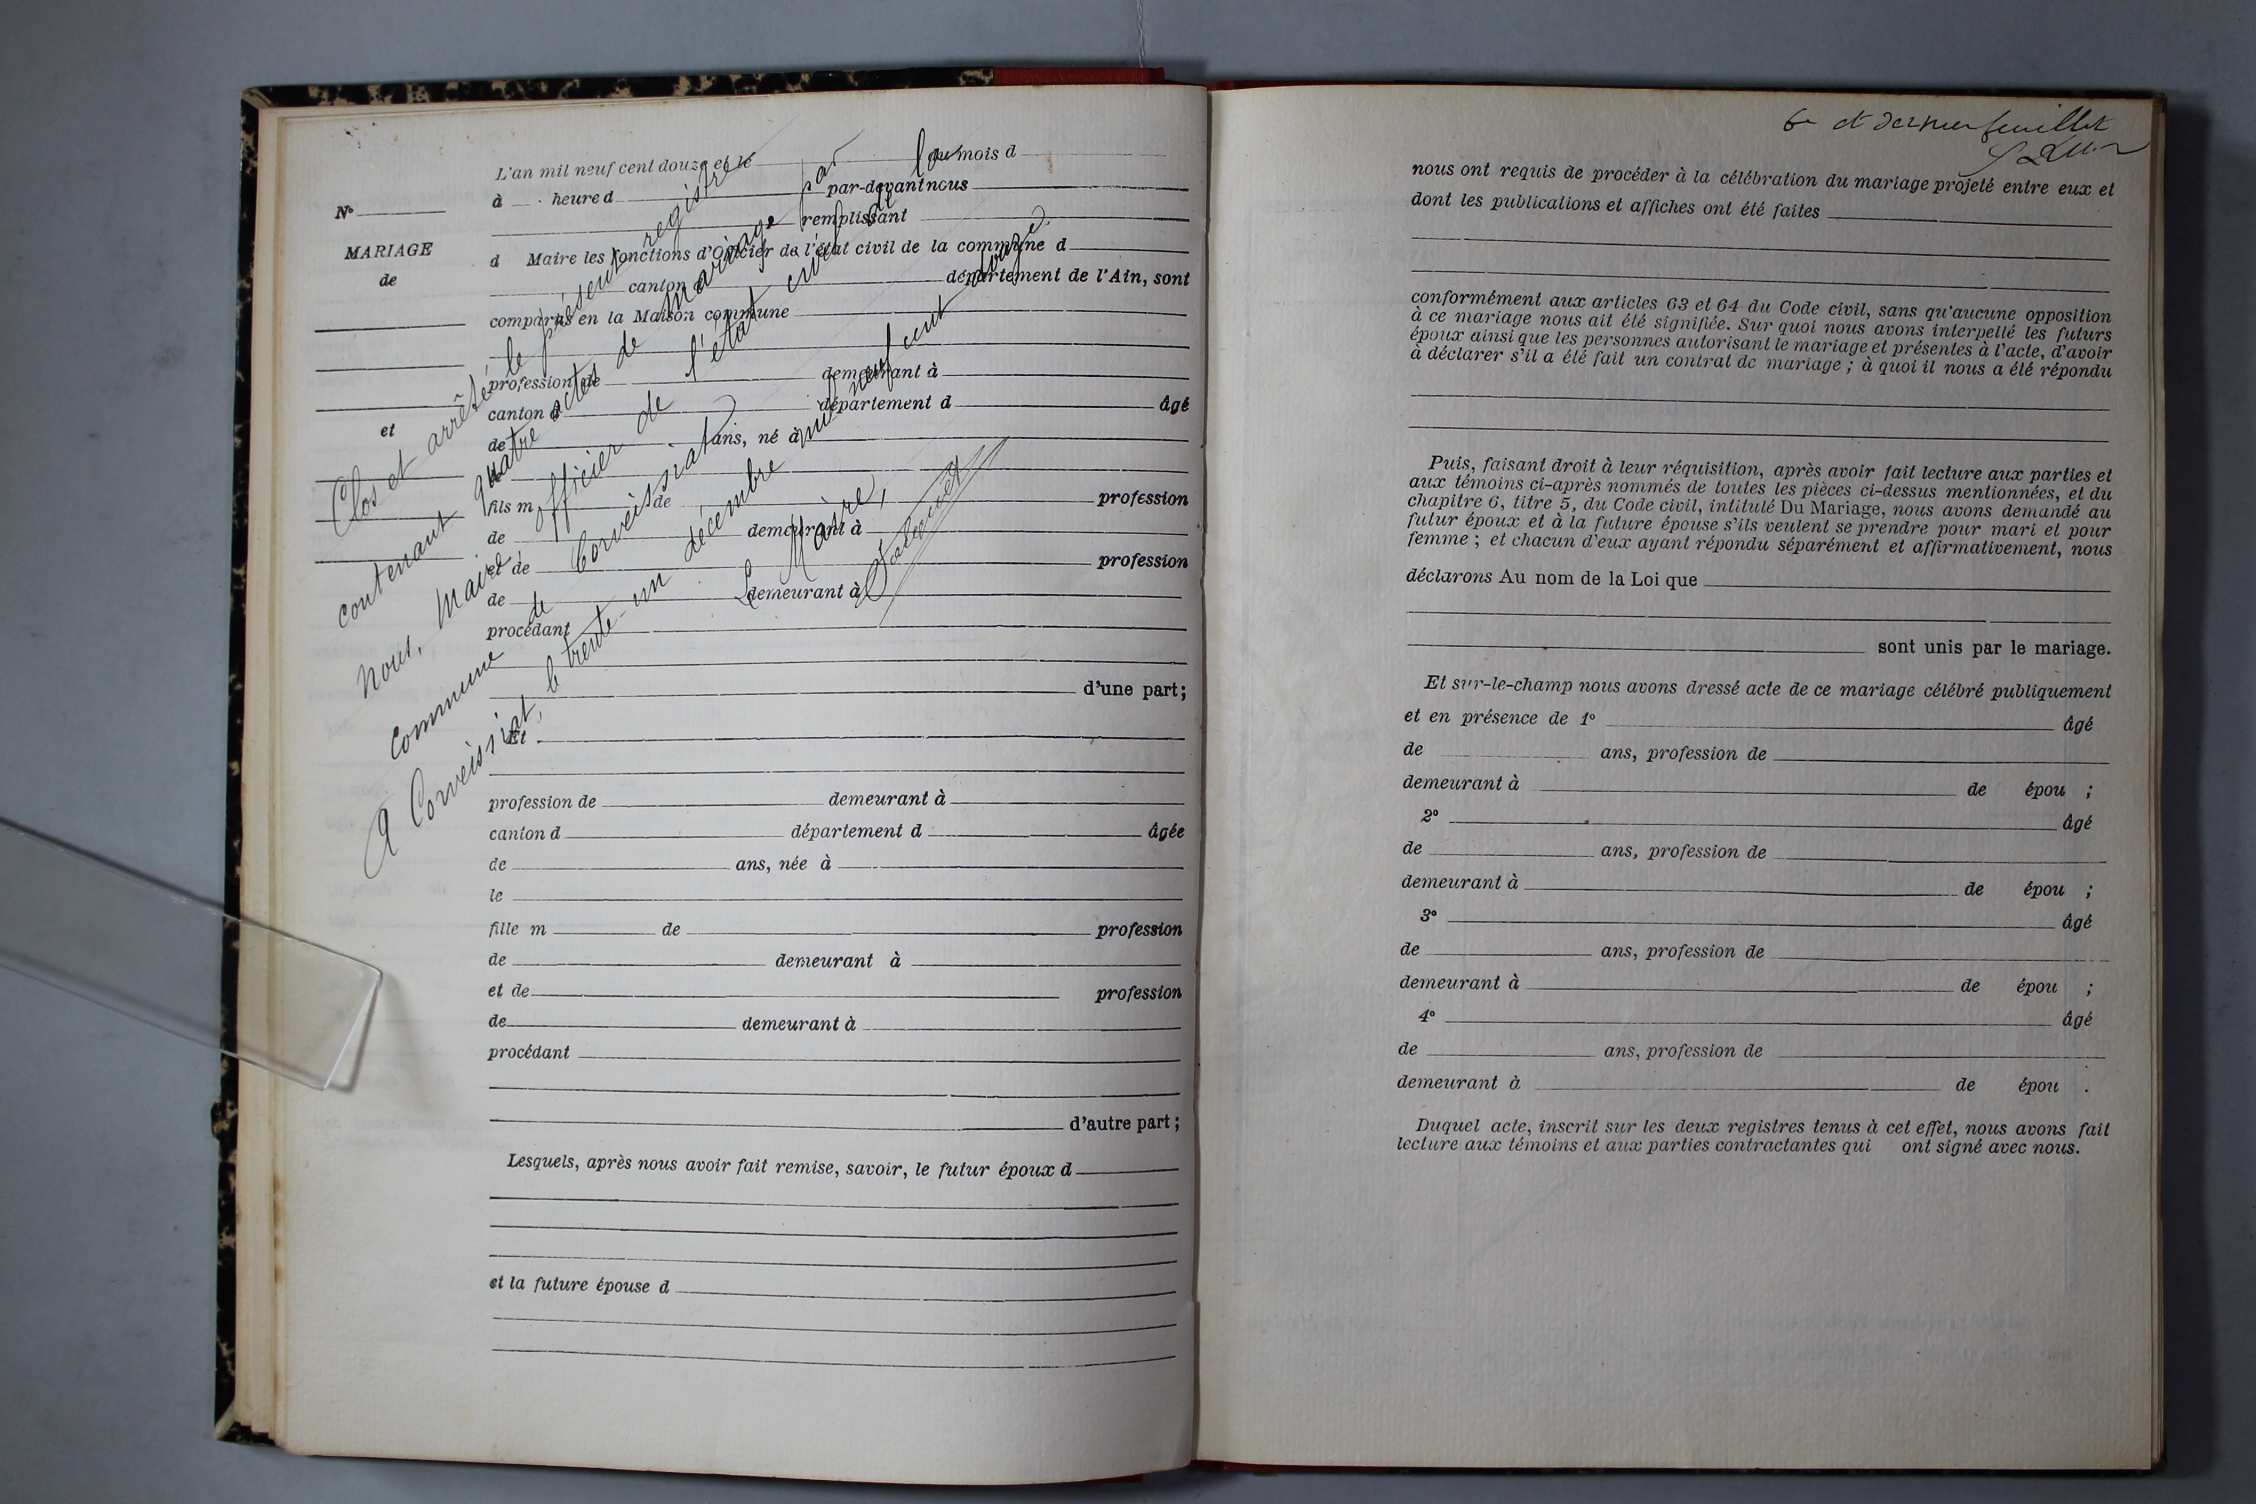 L'an mil neuf cent douze et le du mois d
à heure d par-devant nous
remplissant
d Maire les fonctions d'Officier de l'état civil de la commune d
canton d département de l'Ain, sont
comparus en la Maison commune
profession de demeurant à
canton d département d âgé
de ans, né à
le
fils m de profession
de demeurant à
et de profession
de demeurant à
procédant
d'une part;
Et
profession de demeurant à
canton d département d âgée
de ans, née à
le
fille m de profession
de demeurant à
et de profession
de demeurant à
procédant
d'autre part;
Lesquels, après nous avoir fait remise, savoir, le futur époux d
et la future épouse d
No
MARIAGE
de
et
Clos et arrêté le présent registre
contenant quatre actes de mariage par
Nous, Maire officier de l'état civil de la
commune de Corveissiat
A Corveissiat, le trente-un décembre mil neuf cent douze.
Le Maire,
6e et dernier feuillet
nous ont requis de procéder à la célébration du mariage projeté entre eux et
dont les publications et affiches ont été faites
conformément aux articles 63 et 64 du Code civil, sans qu'aucune opposition
à ce mariage nous ait été signifiée. Sur quoi nous avons interpellé les futurs
époux ainsi que les personnes autorisant le mariage et présentes à l'acte, d'avoir
à déclarer s'il a été fait un contrat de mariage; à quoi il nous a été répondu
Puis, faisant droit à leur réquisition, après avoir fait lecture aux parties et
aux témoins ci-après nommés de toutes les pièces ci-dessus mentionnées, et du
chapitre 6, titre 5, du Code civil, intitulé Du Mariage, nous avons demandé au
futur époux et à la future épouse s'ils veulent se prendre pour mari et pour
femme; et chacun d'eux ayant répondu séparément et affirmativement, nous
déclarons Au nom de la Loi que
sont unis par le mariage.
Et sur-le-champ nous avons dressé acte de ce mariage célébré publiquement
et en présence de 1o âgé
de ans, profession de
demeurant à de épou ;
2o âgé
de ans, profession de
demeurant à de épou ;
3o âgé
de ans, profession de
demeurant à de épou ;
4o âgé
de ans, profession de
demeurant à de épou .
Duquel acte, inscrit sur les deux registres tenus à cet effet, nous avons fait
lecture aux témoins et aux parties contractantes qui ont signé avec nous.